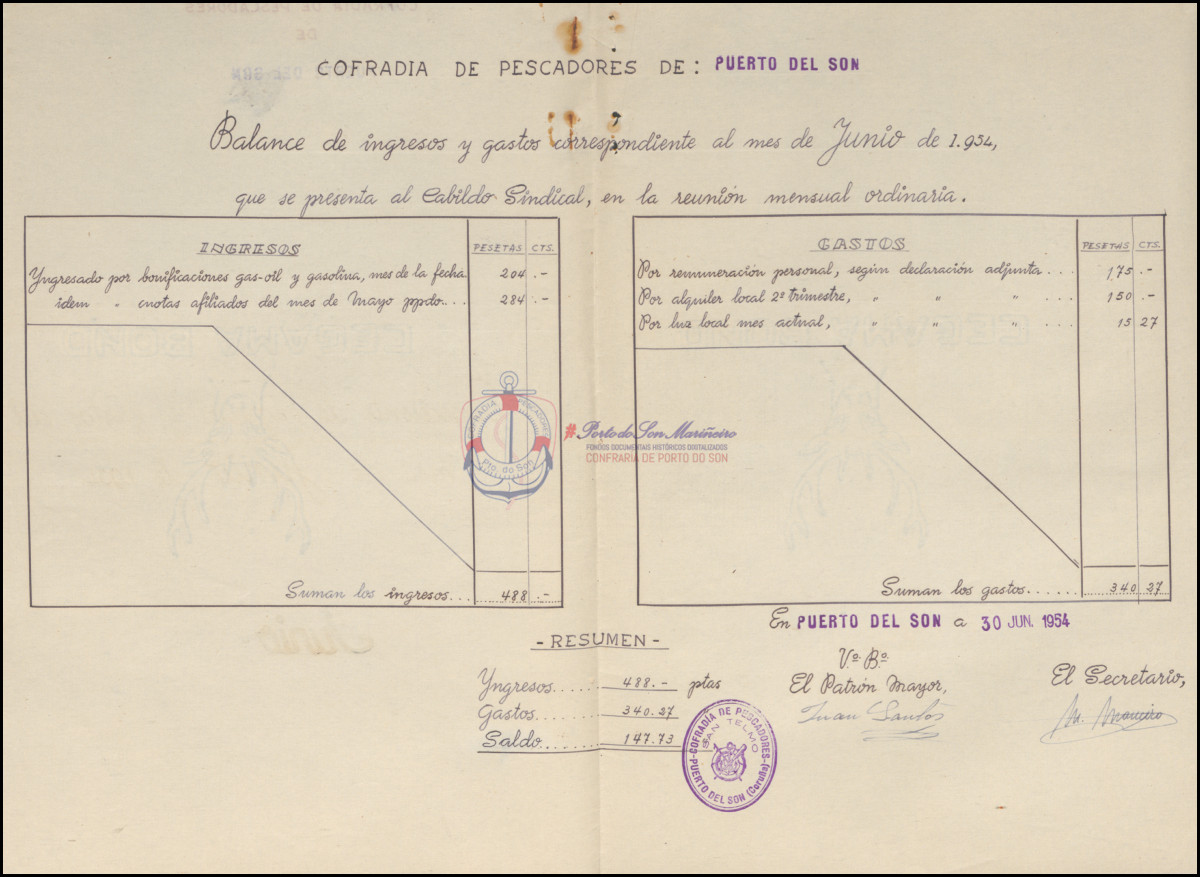 COFRADIA DE PESCADORES DE: PUERTO DEL SON
Balance de ingresos y gastos correspondiente al mes de Junio de 1.954,
que se presenta al Cabildo Sindical, en la reunión mensual ordinaria.
INGRESOS PESETAS CTS.
Yngresado por bonificaciones gas-oil y gasolina, mes de la fecha 204 .-
idem " cuotas afiliados del mes de Mayo ppdo... 284 .-
Suman los ingresos... 488 .-
GASTOS PESETAS CTS.
Por remuneración personal, según declaración adjunta... 175 .-
Por alquiler local 2º trimestre, " " " .... 150 .-
Por luz local mes actual, " " " .... 15 27
Suman los gastos...... 340 27
COFRADIA PESCADORES
Pto. do Son
#Porto do Son Mariñeiro
FONDOS DOCUMENTAIS HISTÓRICOS DIXITALIZADOS
CONFRARÍA DE PORTO DO SON
En PUERTO DEL SON a 30 JUN. 1954
- RESUMEN -
Yngresos..... 488.- ptas
Gastos....... 340.27
Saldo....... 147.73
Vº Bº
El Patrón Mayor,
Juan Santos
El Secretario,
COFRADÍA DE PESCADORES
SAN TELMO
PUERTO DEL SON (Coruña)